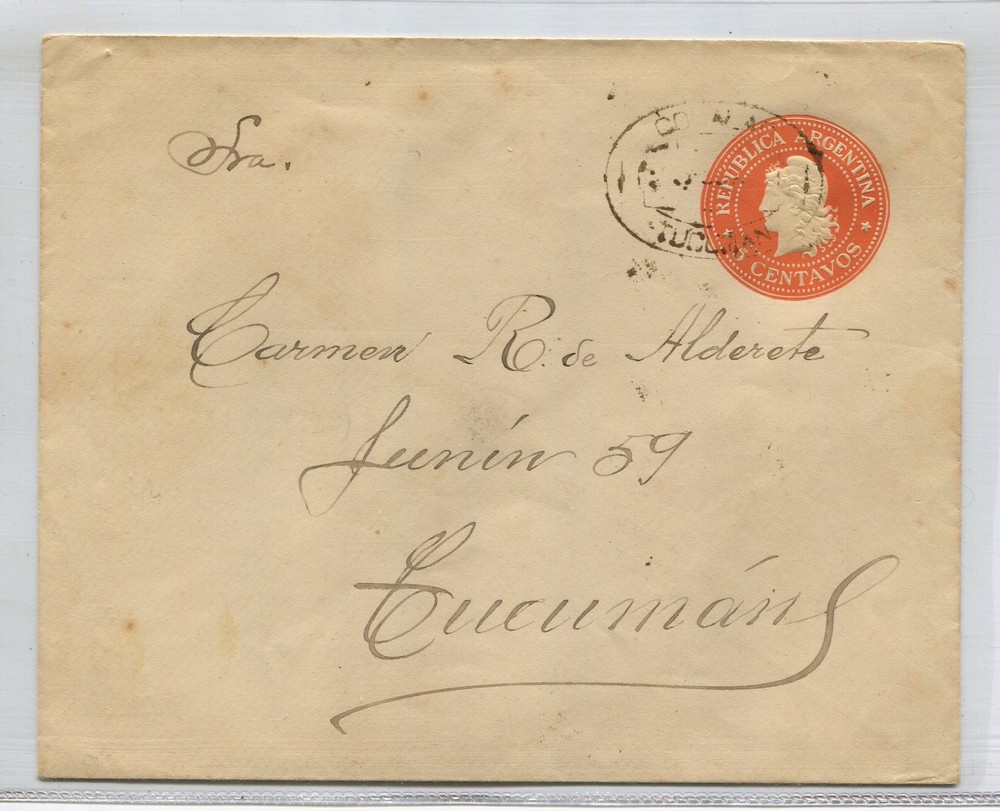 Sra.
REPUBLICA ARGENTINA
CENTAVOS
TUCUMAN
Carmen R. de Alderete
Junín 59
Tucumán